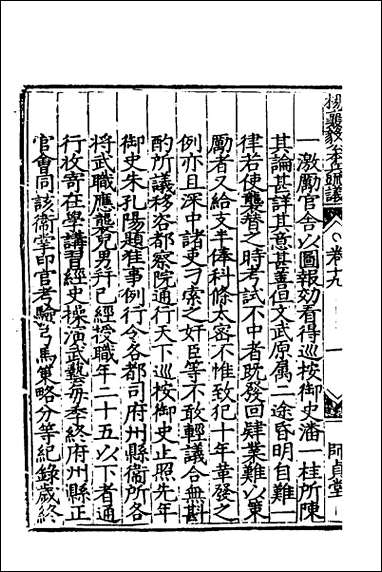 楊襄毅公本兵疏議 卷十九 一 師貞堂
一激勵官舍以圖報効看得巡按御史潘一桂所陳
其論甚詳其意甚善但文武原属二途昏明自難一
律若使襲替之時考試不中者既發回肄業難以策
勵者又給文半俸科條太密不惟致犯十年革發之
例亦且深中諸吏刁索之奸臣等不敢輕議合無斟
酌所議移咨都察院通行天下巡按御史止照先年
御史朱孔陽題准事例行令各都司府州縣衞所各
將武職應襲兒男并已經授職年二十五以下者通
行收寄在學講習經史操演武藝每季終府州縣正
官會同該衛掌印官考驗弓馬策略分等紀錄歲終